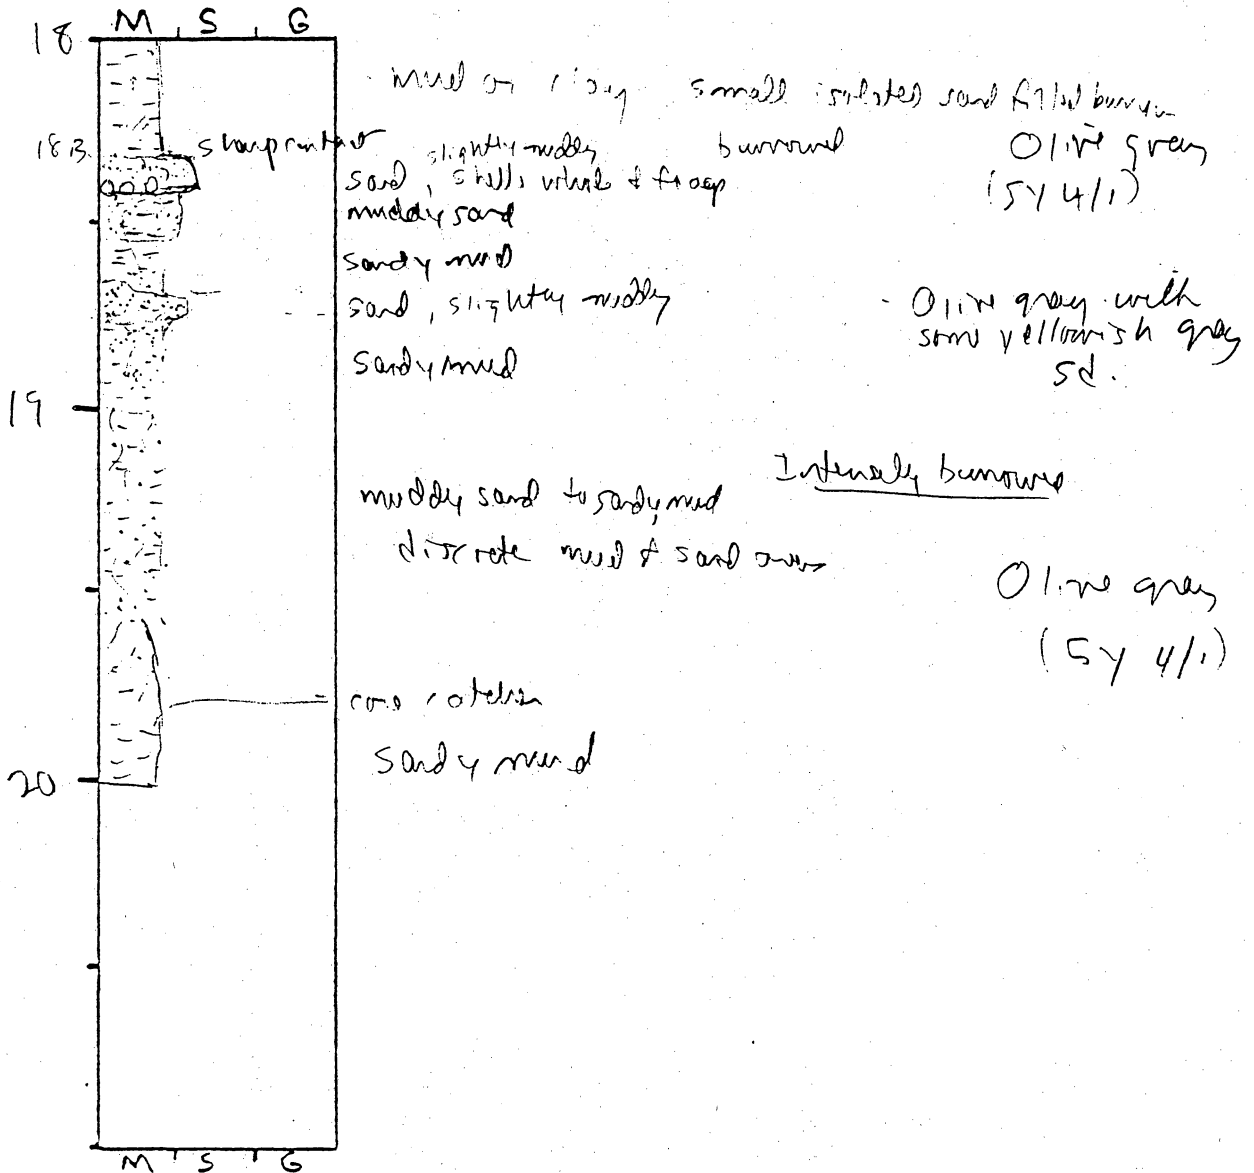 M S G
18
mud or clay small isolated sand filled burrows
18.3 sharp contact slightly muddy burrowed Olive gray
sand, shells whole & frags (5Y 4/1)
muddy sand
sandy mud
sand, slightly muddy Olive gray with
some yellowish gray
sd.
sandy mud
19
Intensely burrowed
muddy sand to sandy mud
discrete mud & sand
Olive gray
(5Y 4/1)
core catcher
sandy mud
20
M S G